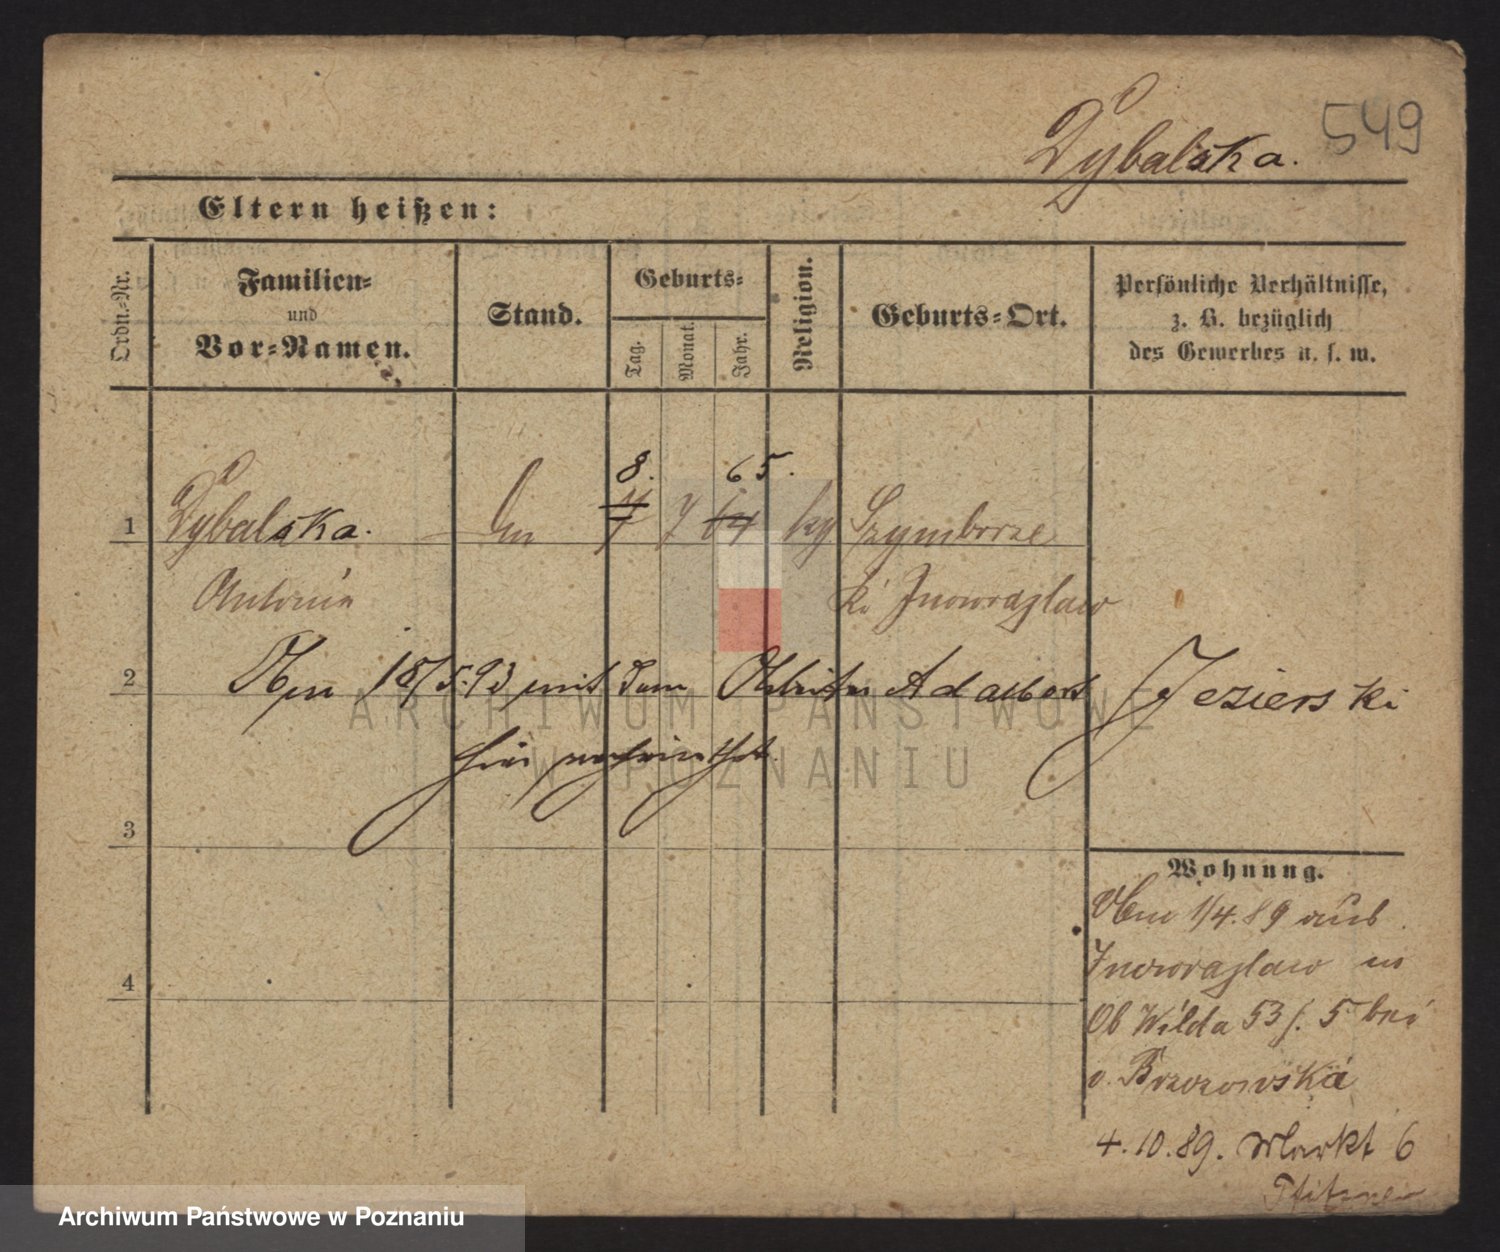 549
Dybalska.
Eltern heißen:
Ordn.-Nr.
Familien-
und
Vor-Namen.
Stand.
Geburts-
Tag.
Monat.
Jahr.
Religion.
Geburts-Ort.
Persönliche Verhältnisse,
z. B. bezüglich
des Gewerbes u. s. w.
8. 65.
1 Dybalska. 7 7 64 Szymborze
Antonie
Kr Inowrazlaw
2 Am 18/5.93 mit dem Arbeiter Adalbert Jezierski
hier verheirathet.
3
Wohnung.
Am 1/4.89 aus
Inowrazlaw in
4
Ob Wilda 53 5 bei
v. Brzozowska
4.10.89. Markt 6
Pfitzner
ARCHIWUM PAŃSTWOWE
W POZNANIU
Archiwum Państwowe w Poznaniu